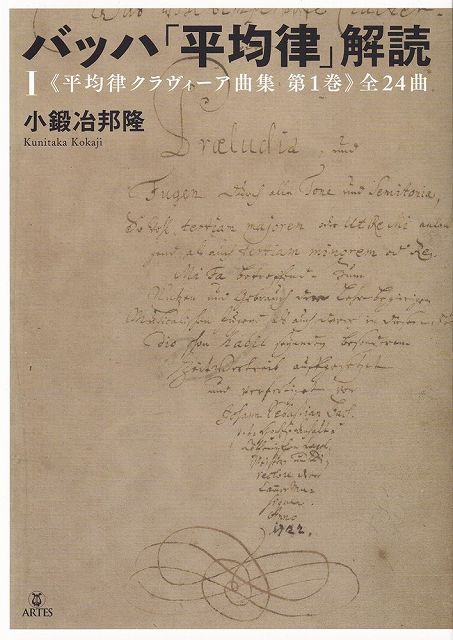 バッハ「平均律」解読
I《平均律クラヴィーア曲集 第1巻》全24曲
小鍛冶邦隆
Kunitaka Kokaji
Præludia, und
Fugen durch alle Tone und Semitonia,
So wohl tertiam majorem oder Ut Re Mi anlan
gend, als auch tertiam minorem od Re
Mi Fa betreffend. Zum
Nutzen und Gebrauch der Lehr-begierigen
Musicalischen Jugend als auch derer in diesem
dio schon habil seyenden besonderem
Zeit Vertreib auffgesetzet
und verfertiget von
Johann Sebastian Bach
Anno
1722.
ARTES